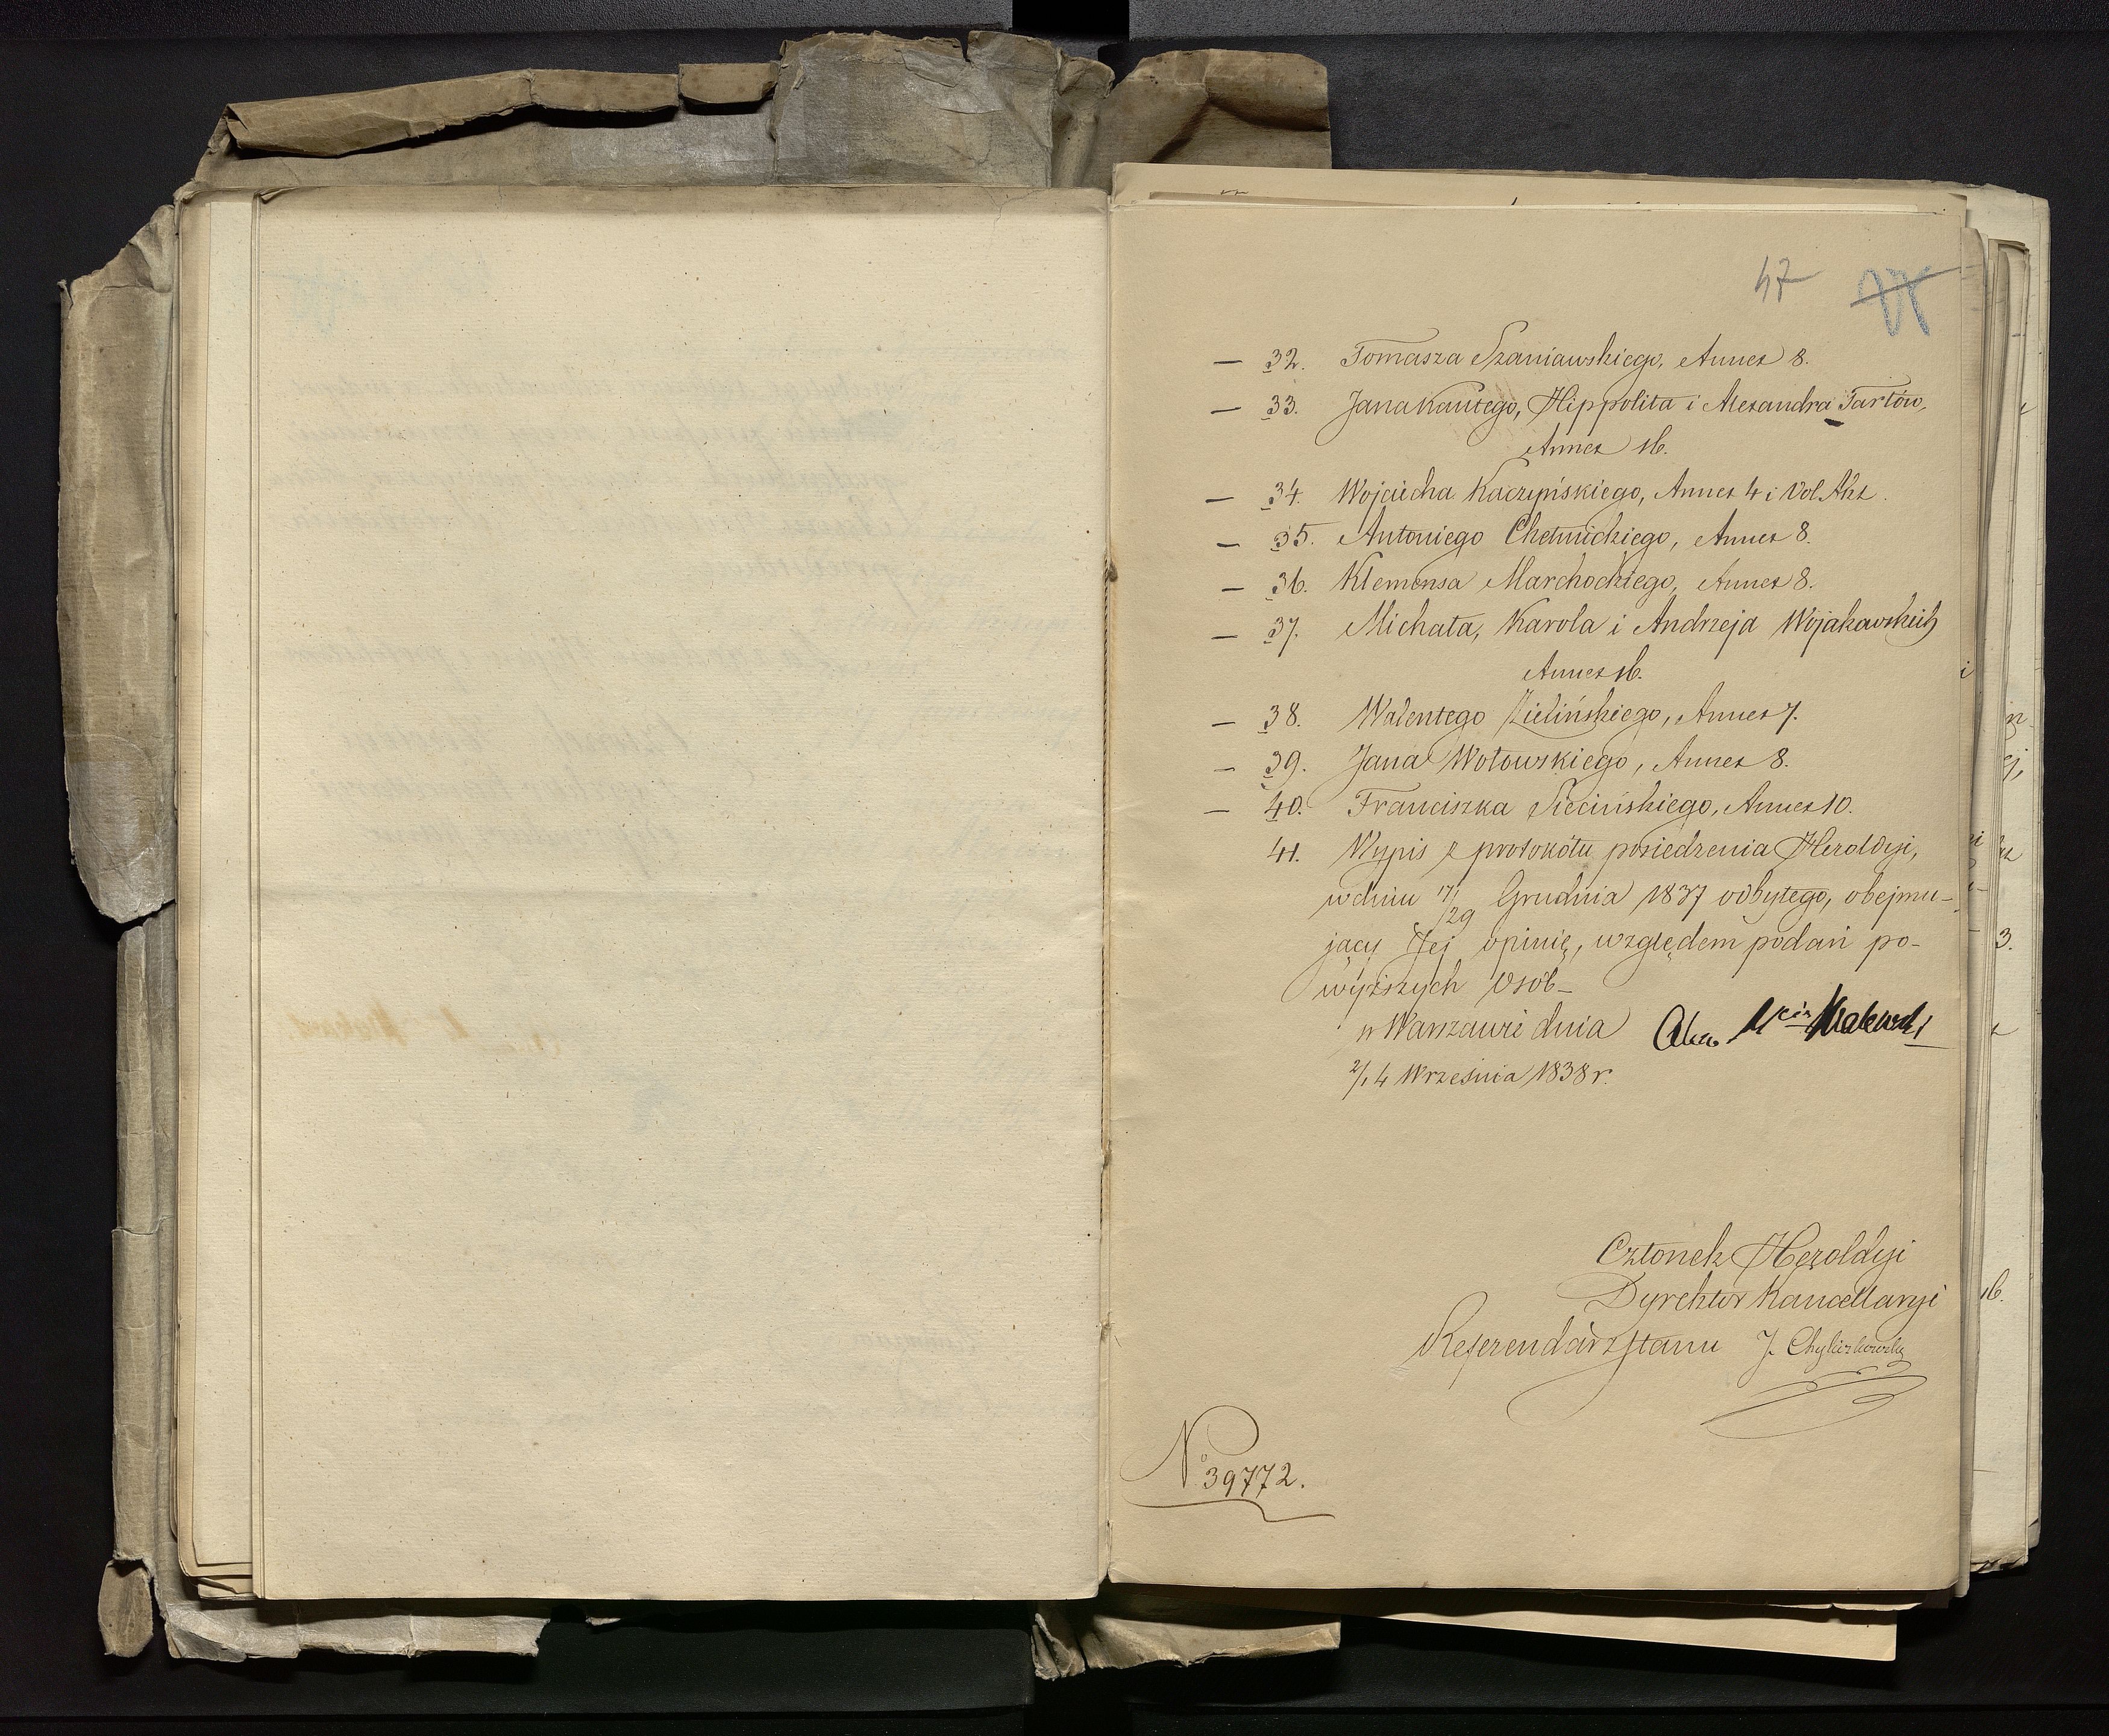 47
— 32. Tomasza Szaniawskiego, Annex 8.
— 33. Jana Kantego, Hippolita i Alexandra Tarłów,
Annex 16.
— 34. Wojciecha Kaczyńskiego, Annex 4 i Vol. Akt.
— 35. Antoniego Chetmickiego, Annex 8.
— 36. Klemensa Marchockiego, Annex 8.
— 37. Michała, Karola i Andrzeja Wojakowskich
Annex 16.
— 38. Walentego Zielińskiego, Annex 7.
— 39. Jana Wołowskiego, Annex 8.
— 40. Franciszka Siecińskiego, Annex 10.
41. Wypis z protokółu posiedzenia Heroldyi,
w dniu 17/29 Grudnia 1837 odbytego, obejmu-
jący Jej opinię, względem podań po-
wyższych osób —
w Warszawie dnia
2/14 Września 1838 r.
Członek Heroldyi
Dyrektor Kancellaryi
Referendarz Stanu J. Chyliczkowski
No 39772.